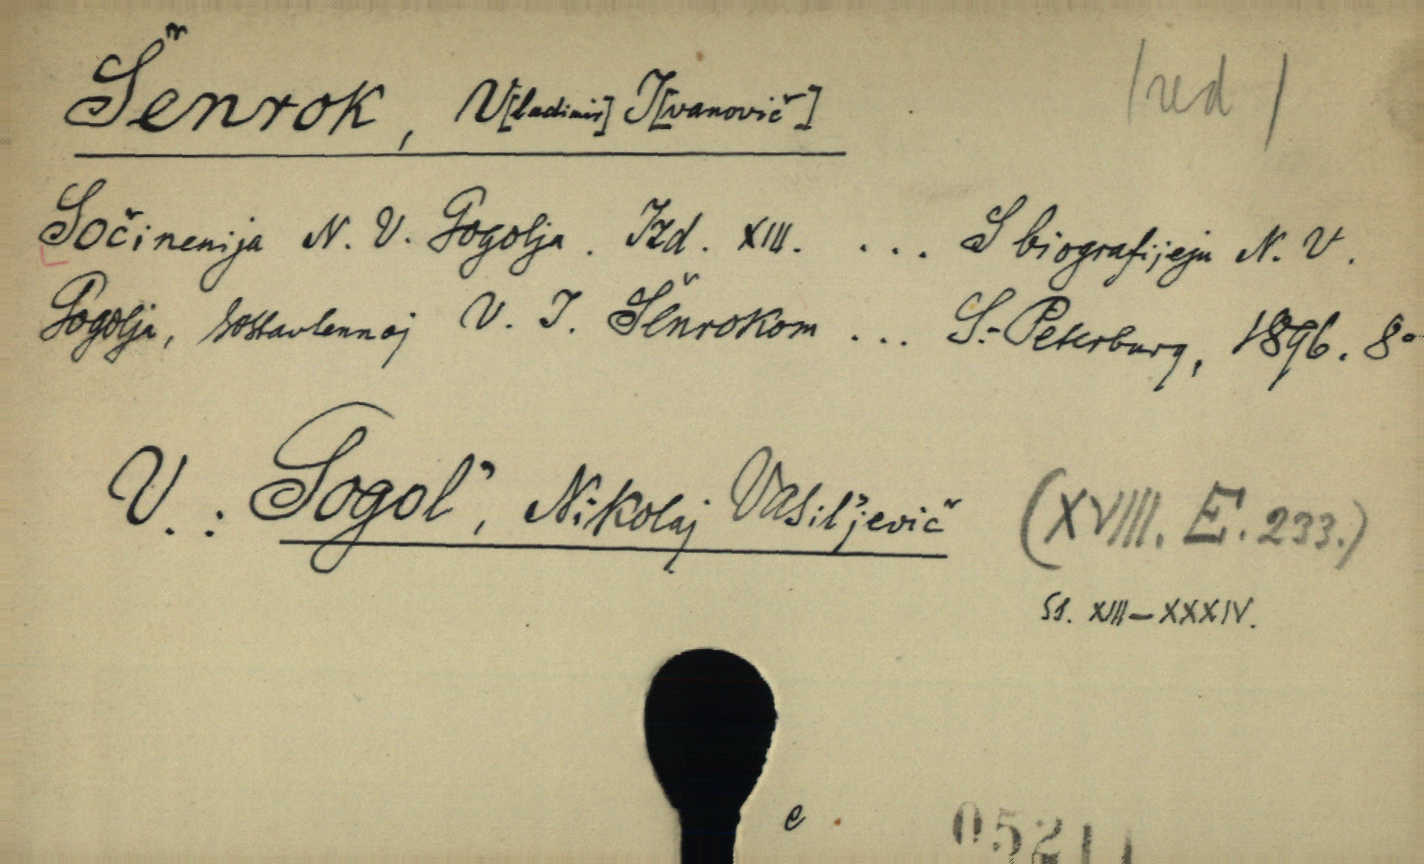 Šenrok, V[ladimir] I[vanovič] /red/
Sočinenija N. V. Gogolja. Izd. XIII. ... S biografijeju N. V.
Gogolja, sostavlennoj V. I. Šenrokom ... S.-Peterburg, 1896. 8°
V.: Gogol', Nikolaj Vasil'jevič (XVIII. E. 233.)
S1. XIII-XXXIV.
e
05211